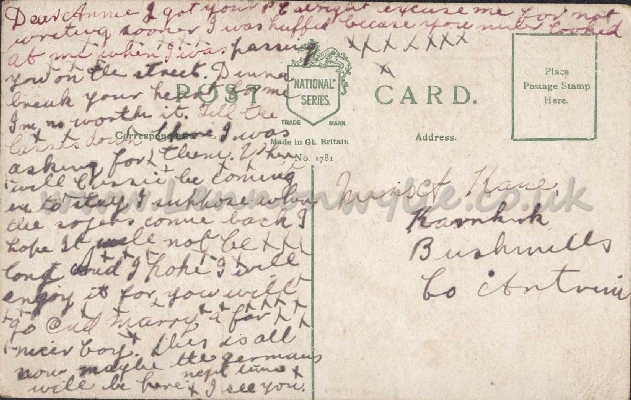 Dear Annie I got your P C alright excuse me for not
writing sooner I was huffed becase you niver looked
at me when I was passing
you on the street. Dinna
break your heart for me
I'm no worth it. Tell the
down there I was
asking for them. When
will Cussie be coming
in to stay I suppose when
the sojers come back I
hope It will not be
long and I hope I will
enjoy it for you will
go and marry a far
nicer boy. this is all
now maybe the germans
will be here next time
I see you.
x x x x x x x
x
POST CARD.
"NATIONAL"
SERIES.
TRADE MARK.
Made in Gt. Britain
No. 1781
Correspondence
Address.
Place
Postage Stamp
Here.
Miss A Kane
Karnkirk
Bushmills
Co Antrim